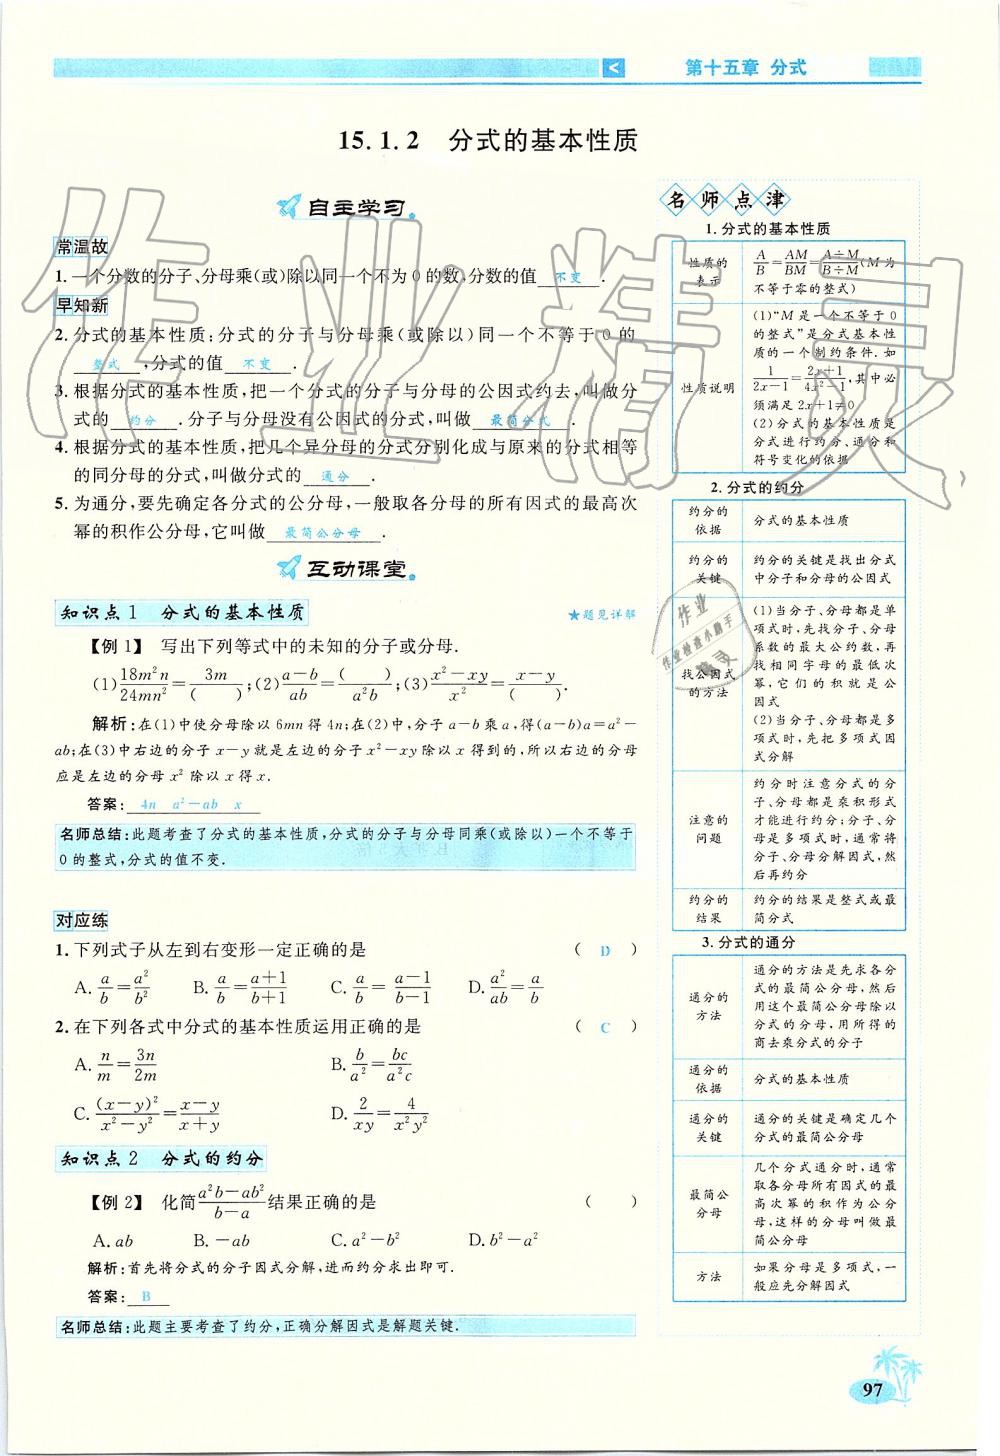 第十五章 分式
15.1.2 分式的基本性质
自主学习
常温故
1.一个分数的分子、分母乘(或)除以同一个不为0的数,分数的值 不变 .
早知新
2.分式的基本性质:分式的分子与分母乘(或除以)同一个不等于0的
整式 ,分式的值 不变 .
3.根据分式的基本性质,把一个分式的分子与分母的公因式约去,叫做分
式的 约分 .分子与分母没有公因式的分式,叫做 最简分式 .
4.根据分式的基本性质,把几个异分母的分式分别化成与原来的分式相等
的同分母的分式,叫做分式的 通分 .
5.为通分,要先确定各分式的公分母,一般取各分母的所有因式的最高次
幂的积作公分母,它叫做 最简公分母 .
互动课堂
知识点1 分式的基本性质 ★题见详解
【例1】 写出下列等式中的未知的分子或分母.
(1)18m²n/24mn²=3m/( );(2)a-b/ab=( )/a²b;(3)x²-xy/x²=x-y/( ).
解析:在(1)中使分母除以6mn得4n;在(2)中,分子a-b乘a,得(a-b)a=a²-
ab;在(3)中右边的分子x-y就是左边的分子x²-xy除以x得到的,所以右边的分母
应是左边的分母x²除以x得x.
答案: 4n a²-ab x
名师总结:此题考查了分式的基本性质,分式的分子与分母同乘(或除以)一个不等于
0的整式,分式的值不变.
对应练
1.下列式子从左到右变形一定正确的是 ( D )
A.a/b=a²/b² B.a/b=a+1/b+1 C.a/b=a-1/b-1 D.a²/ab=a/b
2.在下列各式中分式的基本性质运用正确的是 ( C )
A.n/m=3n/2m B.b/a²=bc/a²c
C.(x-y)²/x²-y²=x-y/x+y D.2/xy=4/x²y²
知识点2 分式的约分
【例2】 化简a²b-ab²/b-a结果正确的是 ( )
A.ab B.-ab C.a²-b² D.b²-a²
解析:首先将分式的分子因式分解,进而约分求出即可.
答案: B
名师总结:此题主要考查了约分,正确分解因式是解题关键.
名师点津
1.分式的基本性质
性质的
表示
A/B=AM/BM=A÷M/B÷M(M为
不等于零的整式)
性质说明
(1)“M是一个不等于0
的整式”是分式基本性
质的一个制约条件.如
1/2x-1=2x+1/4x²-1,其中必
须满足2x+1≠0
(2)分式的基本性质是
分式进行约分、通分和
符号变化的依据
2.分式的约分
约分的
依据
分式的基本性质
约分的
关键
约分的关键是找出分式
中分子和分母的公因式
找公因式
的方法
(1)当分子、分母都是单
项式时,先找分子、分母
系数的最大公约数,再
找相同字母的最低次
幂,它们的积就是公因
式
(2)当分子、分母都是多
项式时,先把多项式因
式分解
注意的
问题
约分时注意分式的分
子、分母都是乘积形式
才能进行约分;分子、分
母是多项式时,通常将
分子、分母分解因式,然
后再约分
约分的
结果
约分的结果是整式或最
简分式
3.分式的通分
通分的
方法
通分的方法是先求各分
式的最简公分母,然后
用这个最简公分母除以
分式的分母,用所得的
商去乘分式的分子
通分的
依据
分式的基本性质
通分的
关键
通分的关键是确定几个
分式的最简公分母
最简公
分母
几个分式通分时,通常
取各分母所有因式的最
高次幂的积作为公分
母,这样的分母叫做最
简公分母
方法
如果分母是多项式,一
般应先分解因式
97
作业精灵
作业
作业检查小助手
精灵